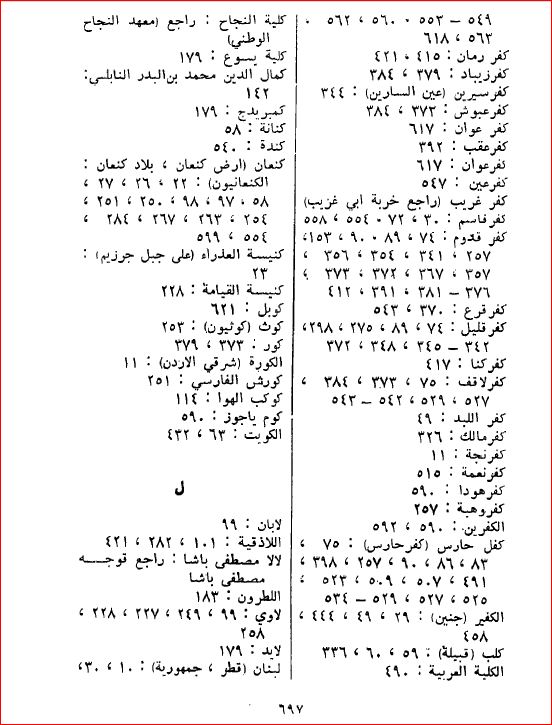 ٥٤٩ – ٥٥٣ ، ٥٦٠ ، ٥٦٢ ،
٥٦٣ ، ٦١٨
كفر رمان : ٤١٥ ، ٤٢١
كفرزيباد : ٣٧٩ ، ٣٨٤
كفرسيرين (عين السارين) : ٣٤٤
كفرعبوش : ٣٧٣ ، ٣٨٤
كفر عوان : ٦١٧
كفرعقب : ٣٩٢
كفرعوان : ٦١٧
كفرعين : ٥٤٧
كفر غريب (راجع خربة أبي غريب)
كفرقاسم : ٣٠ ، ٧٢ ، ٥٥٤ ، ٥٥٨
كفر قدوم : ٧٤ ، ٨٩ ، ٩٠ ، ١٥٣،
٢٥٧ ، ٣٤١ ، ٣٥٤ ، ٣٥٦ ،
٣٥٧ ، ٣٦٧ ، ٣٧٢ ، ٣٧٣ ،
٣٧٦ – ٣٨١ ، ٣٩١ ، ٤١٢
كفرقرع : ٣٧٠ ، ٥٤٣
كفرقليل : ٧٤ ، ٨٩ ، ٢٧٥ ، ٢٩٨،
٣٤٢ – ٣٤٥ ، ٣٤٨ ، ٣٧٢
كفركنا : ٤١٧
كفرلاقف : ٧٥ ، ٣٧٣ ، ٣٨٤ ،
٥٢٧ ، ٥٢٩ ، ٥٤٢ – ٥٤٣
كفر اللبد : ٤٩
كفرمالك : ٣٢٦
كفرنجة : ١١
كفرنعمة : ٥١٥
كفرهودا : ٥٩٠
كفروهبة : ٢٥٧
الكفرين : ٥٩٠ ، ٥٩٢
كفل حارس (كفرحارس) : ٧٥ ،
٨٣ ، ٨٦ ، ٩٠ ، ٢٥٧ ، ٣٩٨ ،
٤٩١ ، ٥٠٧ ، ٥٠٩ ، ٥٢٣ ،
٥٢٥ ، ٥٢٧ ، ٥٢٩ – ٥٣٤
الكفير (جنين) : ٢٩ ، ٤٩ ، ٤٤٤ ،
٤٥٨
كلب (قبيلة) : ٥٩ ، ٦٠ ، ٣٣٦
الكلبة العربية : ٤٩٠
كلية النجاح : راجع (معهد النجاح
الوطني)
كلية يسوع : ١٧٩
كمال الدين محمد بن البدر النابلسي:
١٤٢
كمبريدج : ١٧٩
كنانة : ٥٨
كندة : ٥٤٠
كنعان (ارض كنعان ، بلاد كنعان :
الكنعانيون) : ٢٢ ، ٢٦ ، ٢٧ ،
٥٨ ، ٩٧ ، ٩٨ ، ٢٥٠ ، ٢٥١ ،
٢٥٤ ، ٢٦٣ ، ٢٦٧ ، ٢٨٤ ،
٥٥٤ ، ٥٩٩
كنيسة العذراء (على جبل جرزيم) :
٢٣
كنيسة القيامة : ٢٢٨
كوبل : ٦٢١
كوث (كوثيون) : ٢٥٣
كور : ٣٧٣ ، ٣٧٩
الكورة (شرقي الاردن) : ١١
كورش الفارسي : ٢٥١
كوكب الهوا : ١١٤
كوم ياجوز : ٥٩٠
الكويت : ٦٣ ، ٤٣٢
ل
لابان : ٩٩
اللاذقية : ١٠١ ، ٢٨٢ ، ٤٢١
لالا مصطفى باشا : راجع قوجه
مصطفى باشا
اللطرون : ١٨٣
لاوي : ٩٩ ، ٢٤٩ ، ٢٢٧ ، ٢٢٨ ،
٢٥٨
لايد : ١٧٩
لبنان (قطر ، جمهورية) : ١٠ ، ٣٠،
٦٩٧